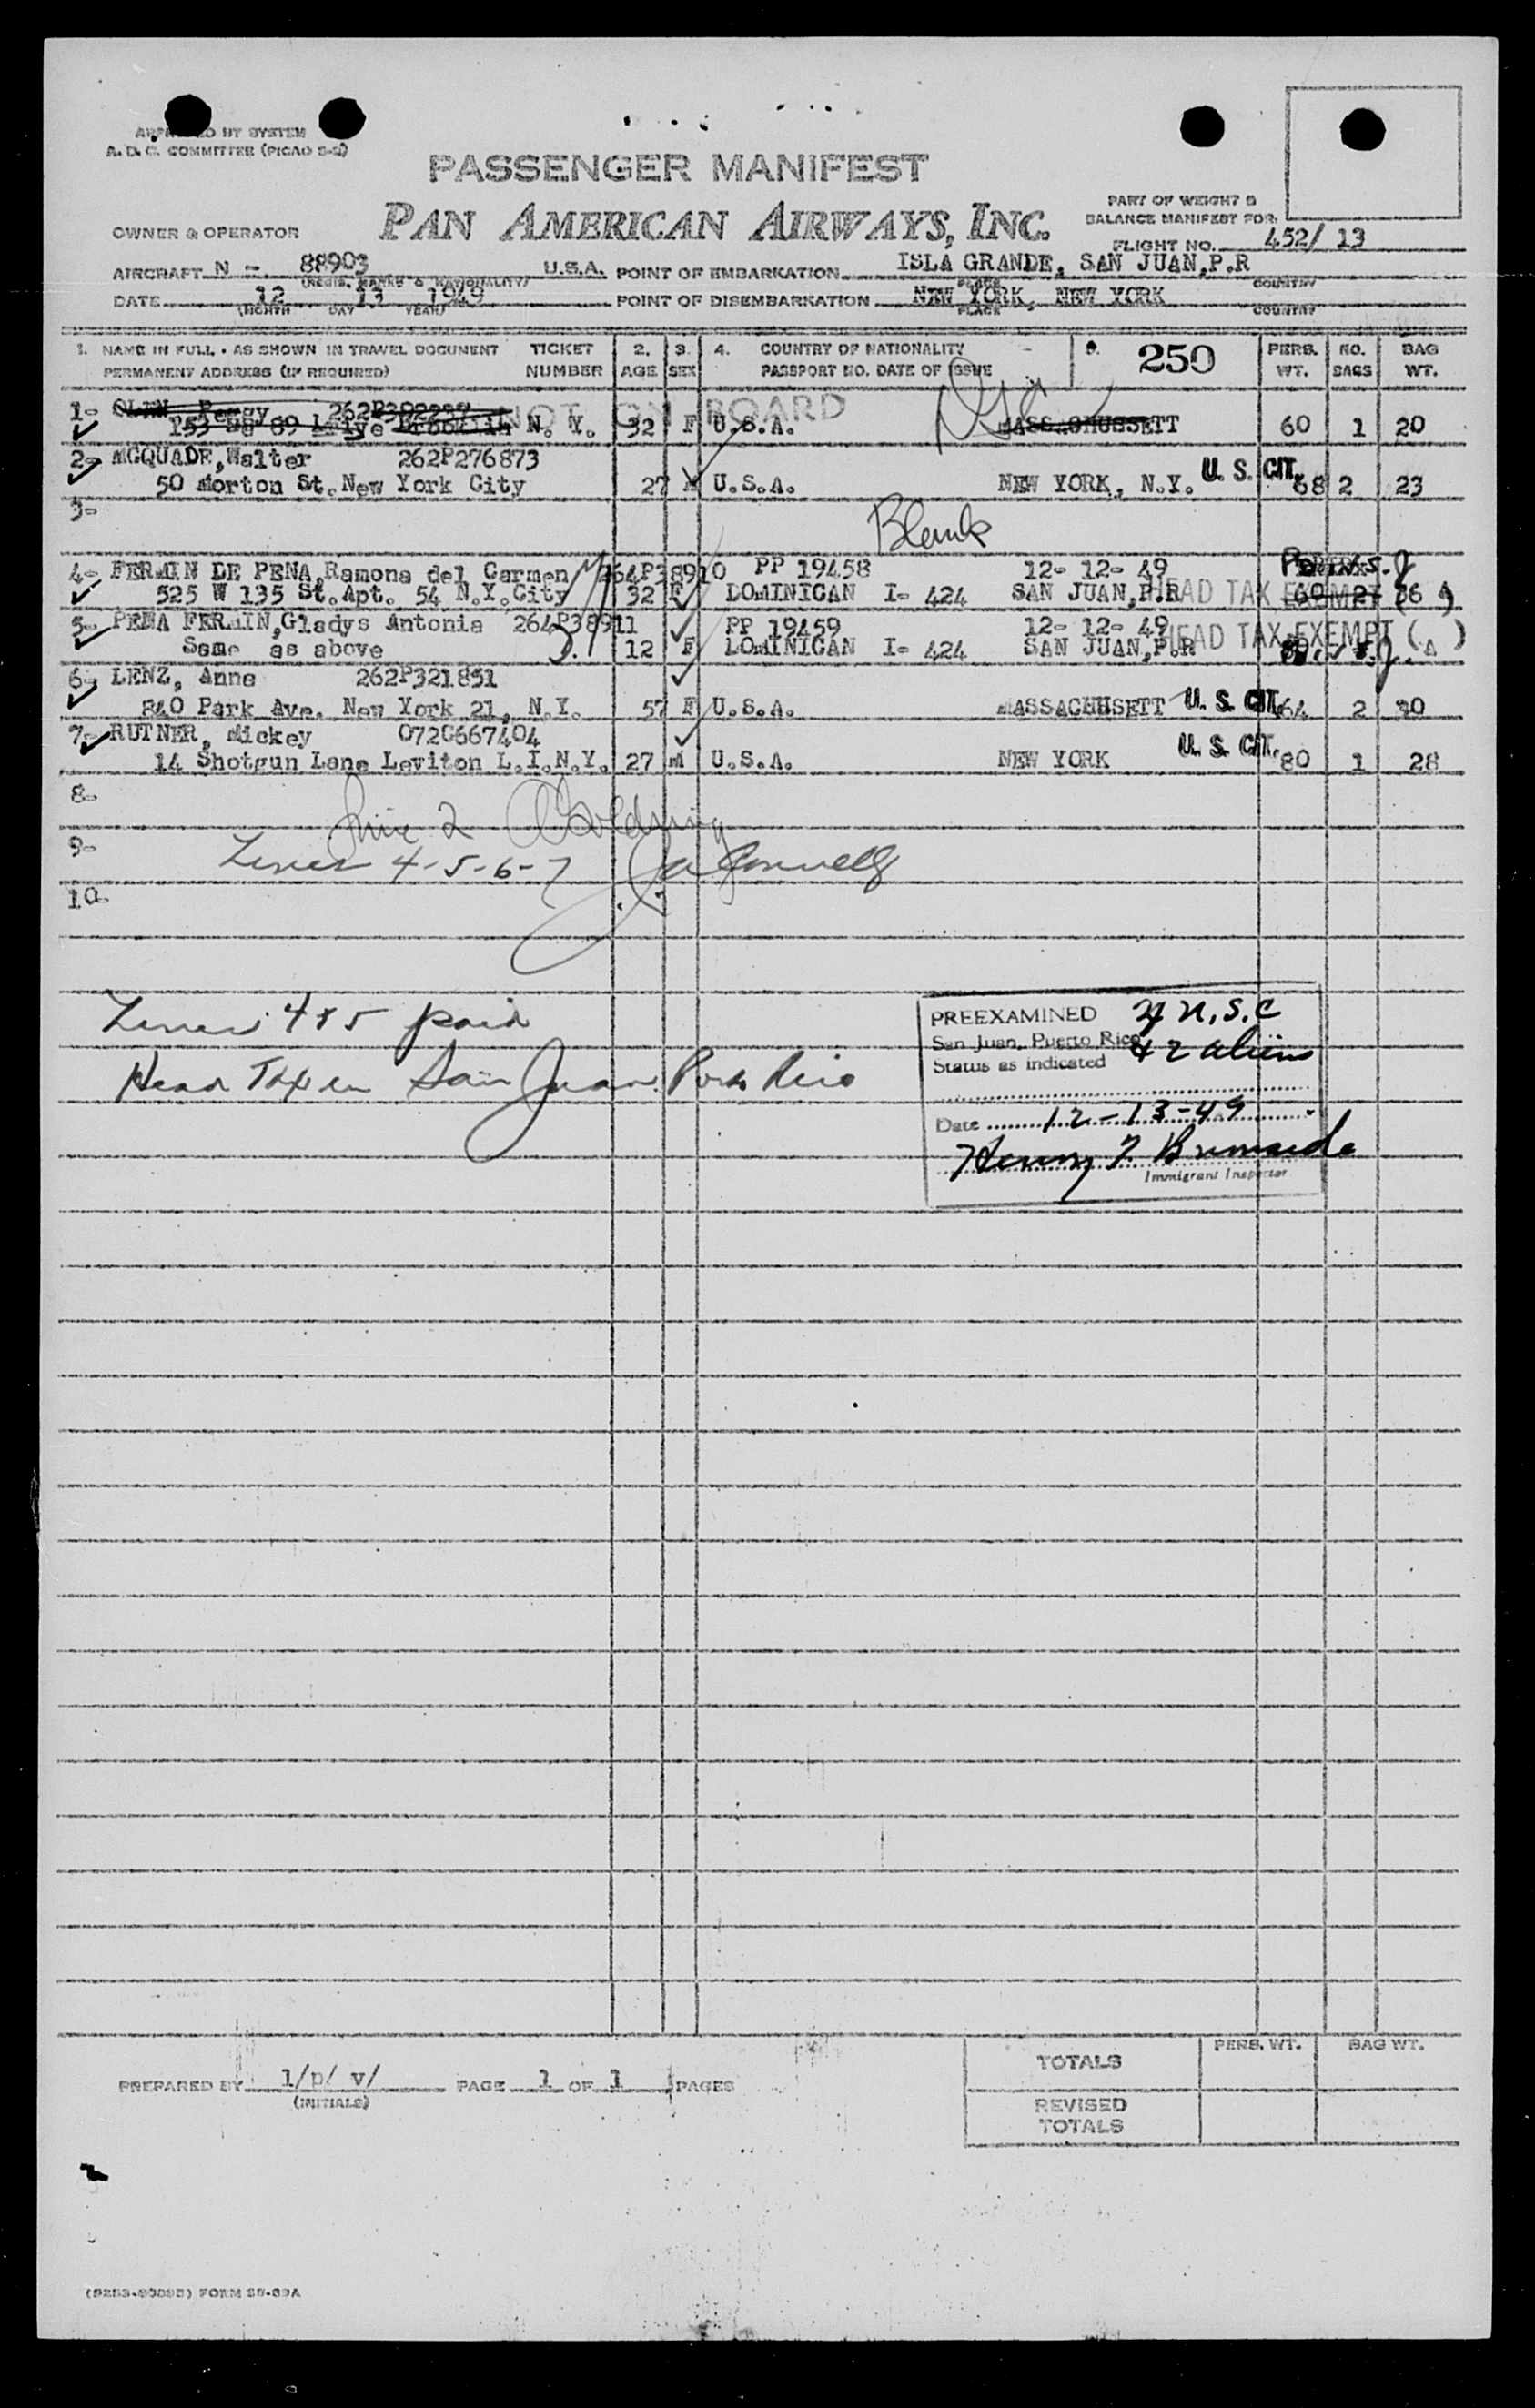 A. D. C. COMMITTEE (PICAO S-2)
PASSENGER MANIFEST
PAN AMERICAN AIRWAYS, INC.
PART OF WEIGHT &
BALANCE MANIFEST FOR:
OWNER & OPERATOR
FLIGHT NO. 452/ 13
AIRCRAFT N - 88903 U.S.A. POINT OF EMBARKATION ISLA GRANDE, SAN JUAN,P.R
(REGIS. MARKS & NATIONALITY) PLACE COUNTRY
DATE 12 13 1949 POINT OF DISEMBARKATION NEW YORK, NEW YORK
(MONTH DAY YEAR) PLACE COUNTRY
1. NAME IN FULL - AS SHOWN IN TRAVEL DOCUMENT TICKET 2. 3. 4. COUNTRY OF NATIONALITY 5. 250 PERS. NO. BAG
PERMANENT ADDRESS (IF REQUIRED) NUMBER AGE SEX PASSPORT NO. DATE OF ISSUE WT. BAGS WT.
1- Peggy NOT ON BOARD
N. Y. 32 F U.S.A. MASSACHUSSETT 60 1 20
2- MCQUADE,Walter 262P276873
50 Morton St.New York City 27 M U.S.A. NEW YORK, N.Y. U. S. CIT. 68 2 23
3-
Blank
4- FERMIN DE PENA,Ramona del Carmen 264P38910 PP 19458 12- 12- 49
525 W 135 St.Apt. 54 N.Y.City 32 F DOMINICAN I- 424 SAN JUAN,P.R HEAD TAX EXEMPT
5- PENA FERMIN,Gladys Antonia 264P38911 PP 19459 12- 12- 49
Same as above 12 F DOMINICAN I- 424 SAN JUAN,P.R HEAD TAX EXEMPT ( )
6- LENZ, Anna 262P321851
840 Park Ave. New York 21, N.Y. 57 F U.S.A. MASSACHUSETT U. S. CIT. 64 2 30
7- RUTNER, Mickey 072C667404
14 Shotgun Lane Leviton L.I.N.Y. 27 M U.S.A. NEW YORK U. S. CIT. 80 1 28
8-
line 2
9-
Lines 4-5-6-7
10-
Lines 4 & 5 paid
Head Tax in San Juan Porto Rico
PREEXAMINED
San Juan, Puerto Rico
Status as indicated & 2 aliens
Date 12-13-49
Immigrant Inspector
TOTALS PERS. WT. BAG WT.
PREPARED BY 1/p/ v/ PAGE 1 OF 1 PAGES
(INITIALS)
REVISED
TOTALS